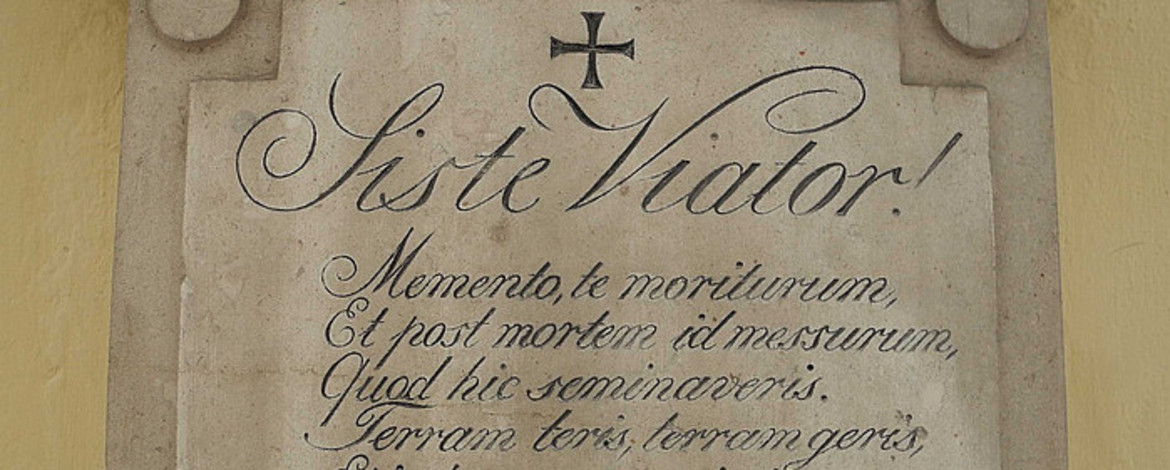 Siste Viator!
Memento, te moriturum,
Et post mortem id messurum,
Quod hic seminaveris.
Terram teris, terram geris,